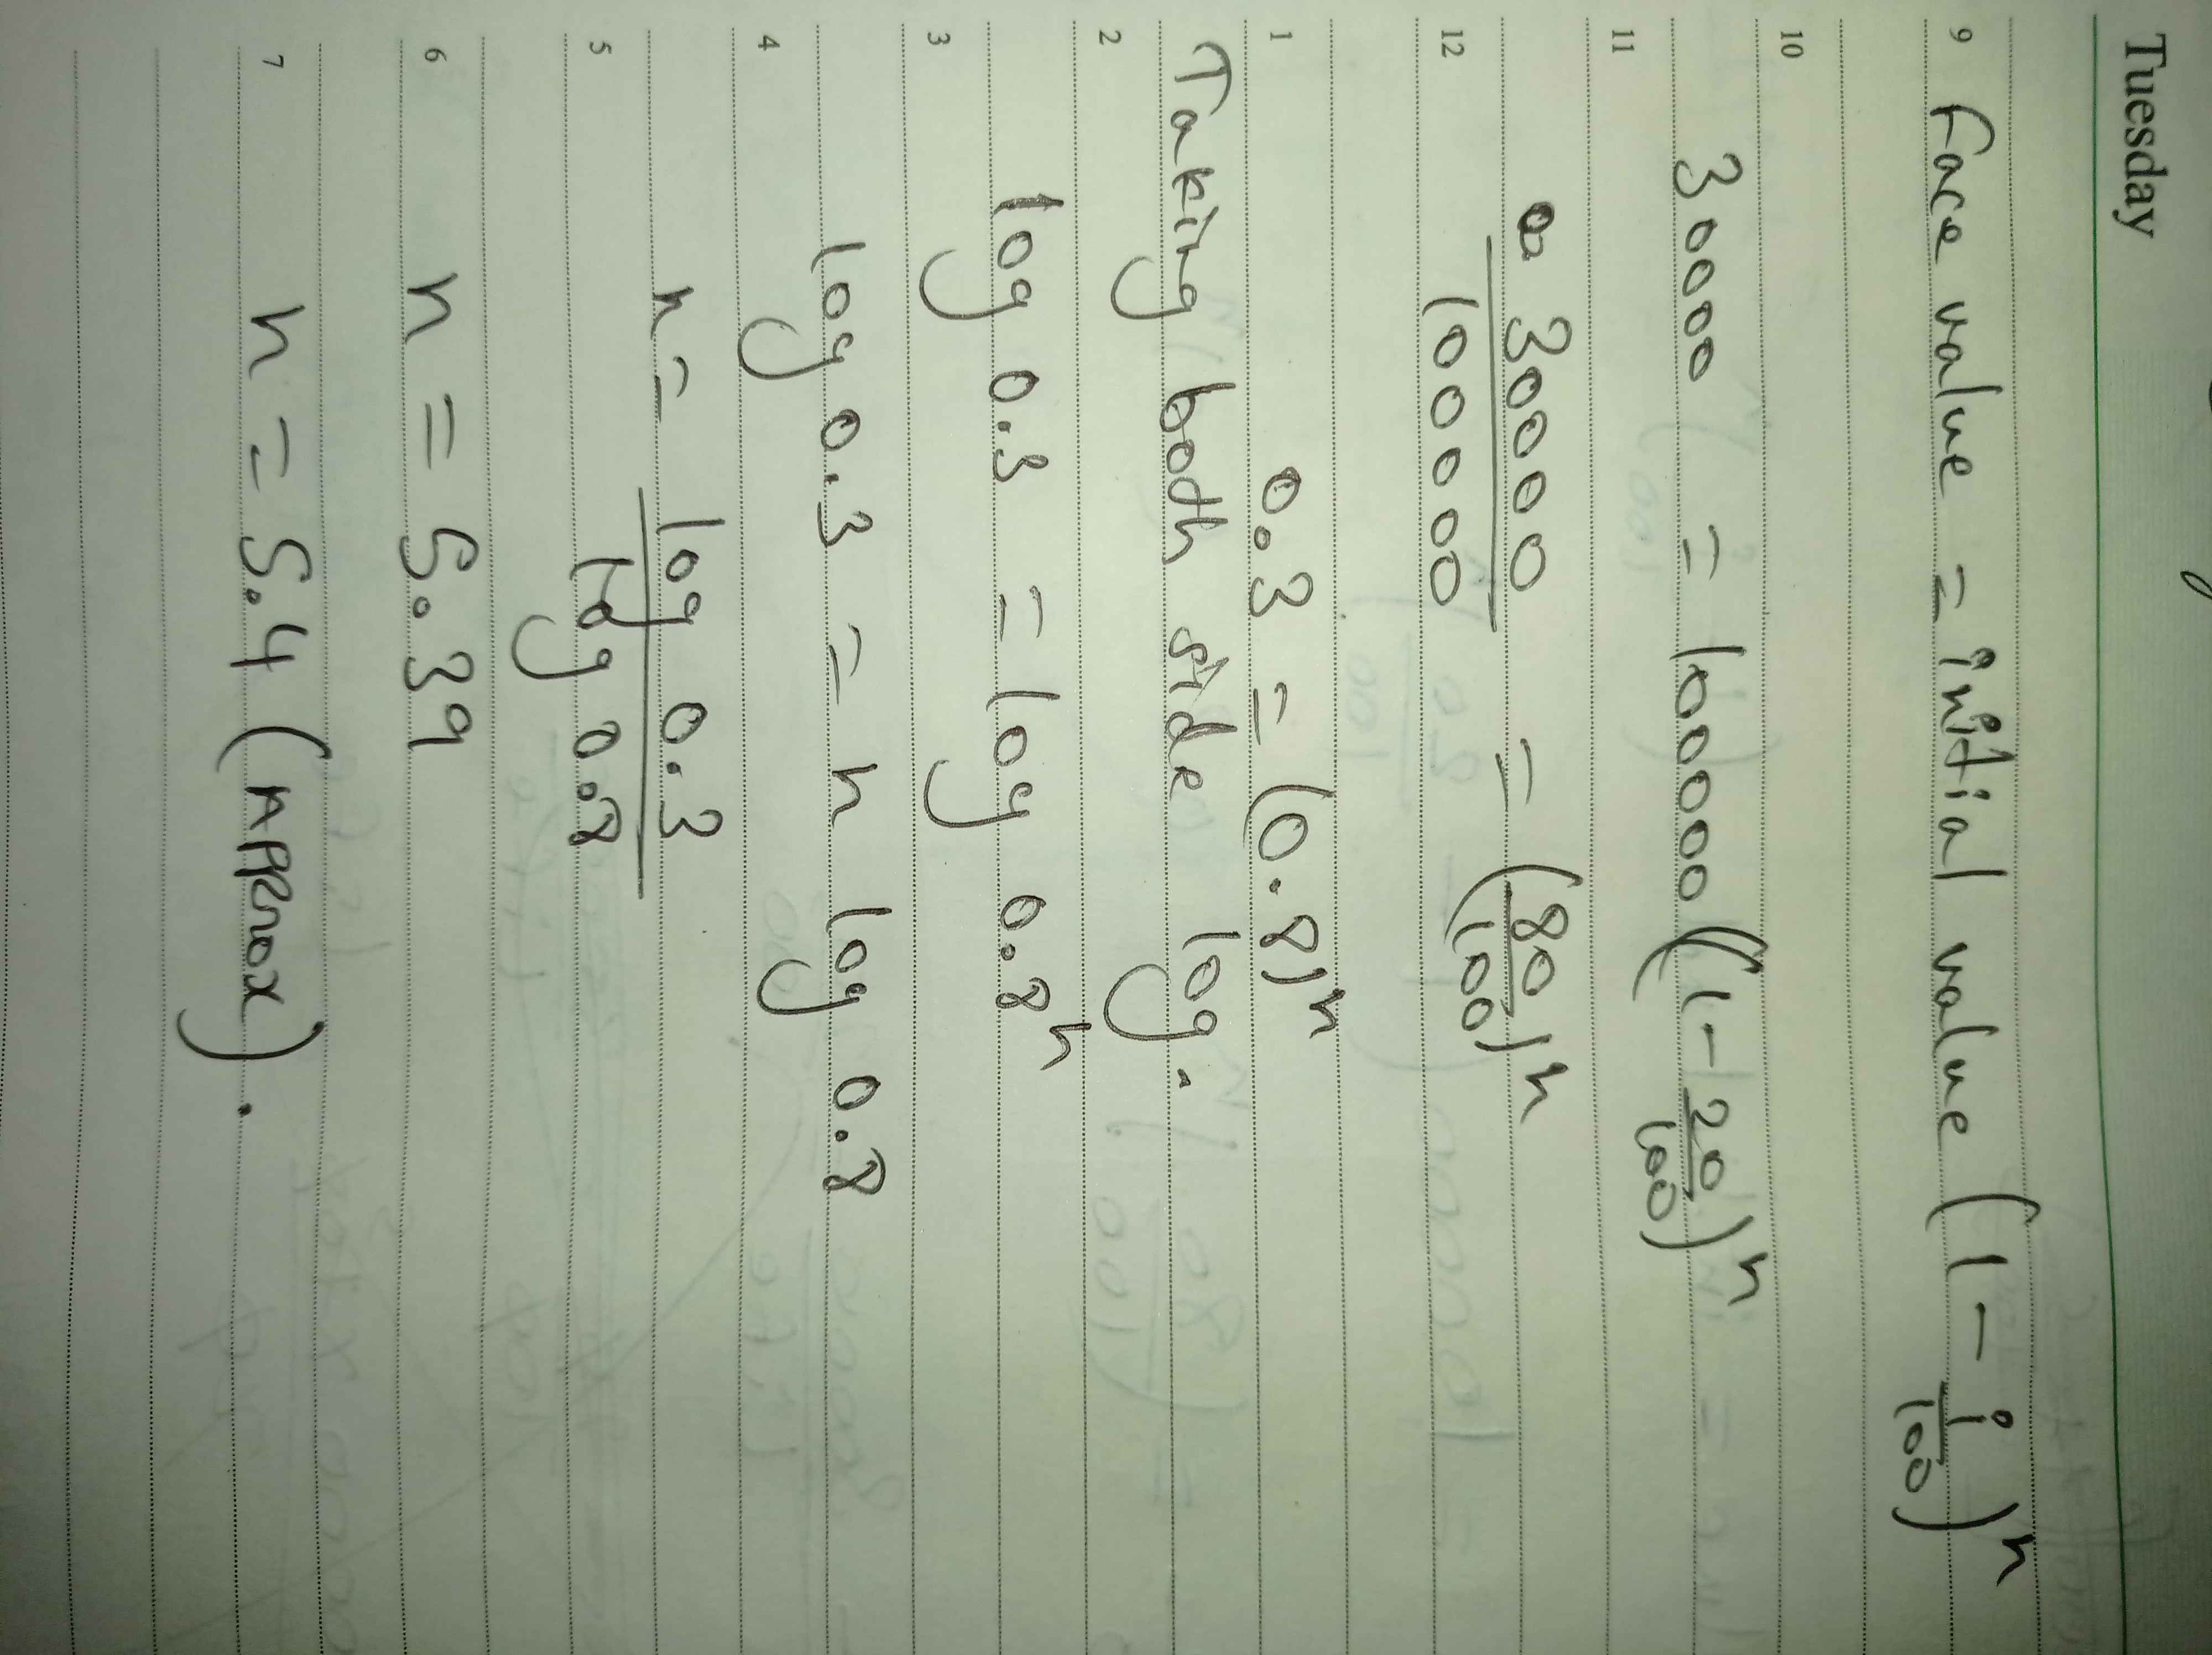 Tuesday
9 Face value = initial value (1 - i/100)^n
10
300000 = 1000000 (1 - 20/100)^n
11
300000/1000000 = (80/100)^n
12
0.3 = (0.8)^n
1
Taking both side log.
2
log 0.3 = log 0.8^n
3
log 0.3 = n log 0.8
4
n = log 0.3/log 0.8
5
n = 5.39
6
n = 5.4 (Approx).
7